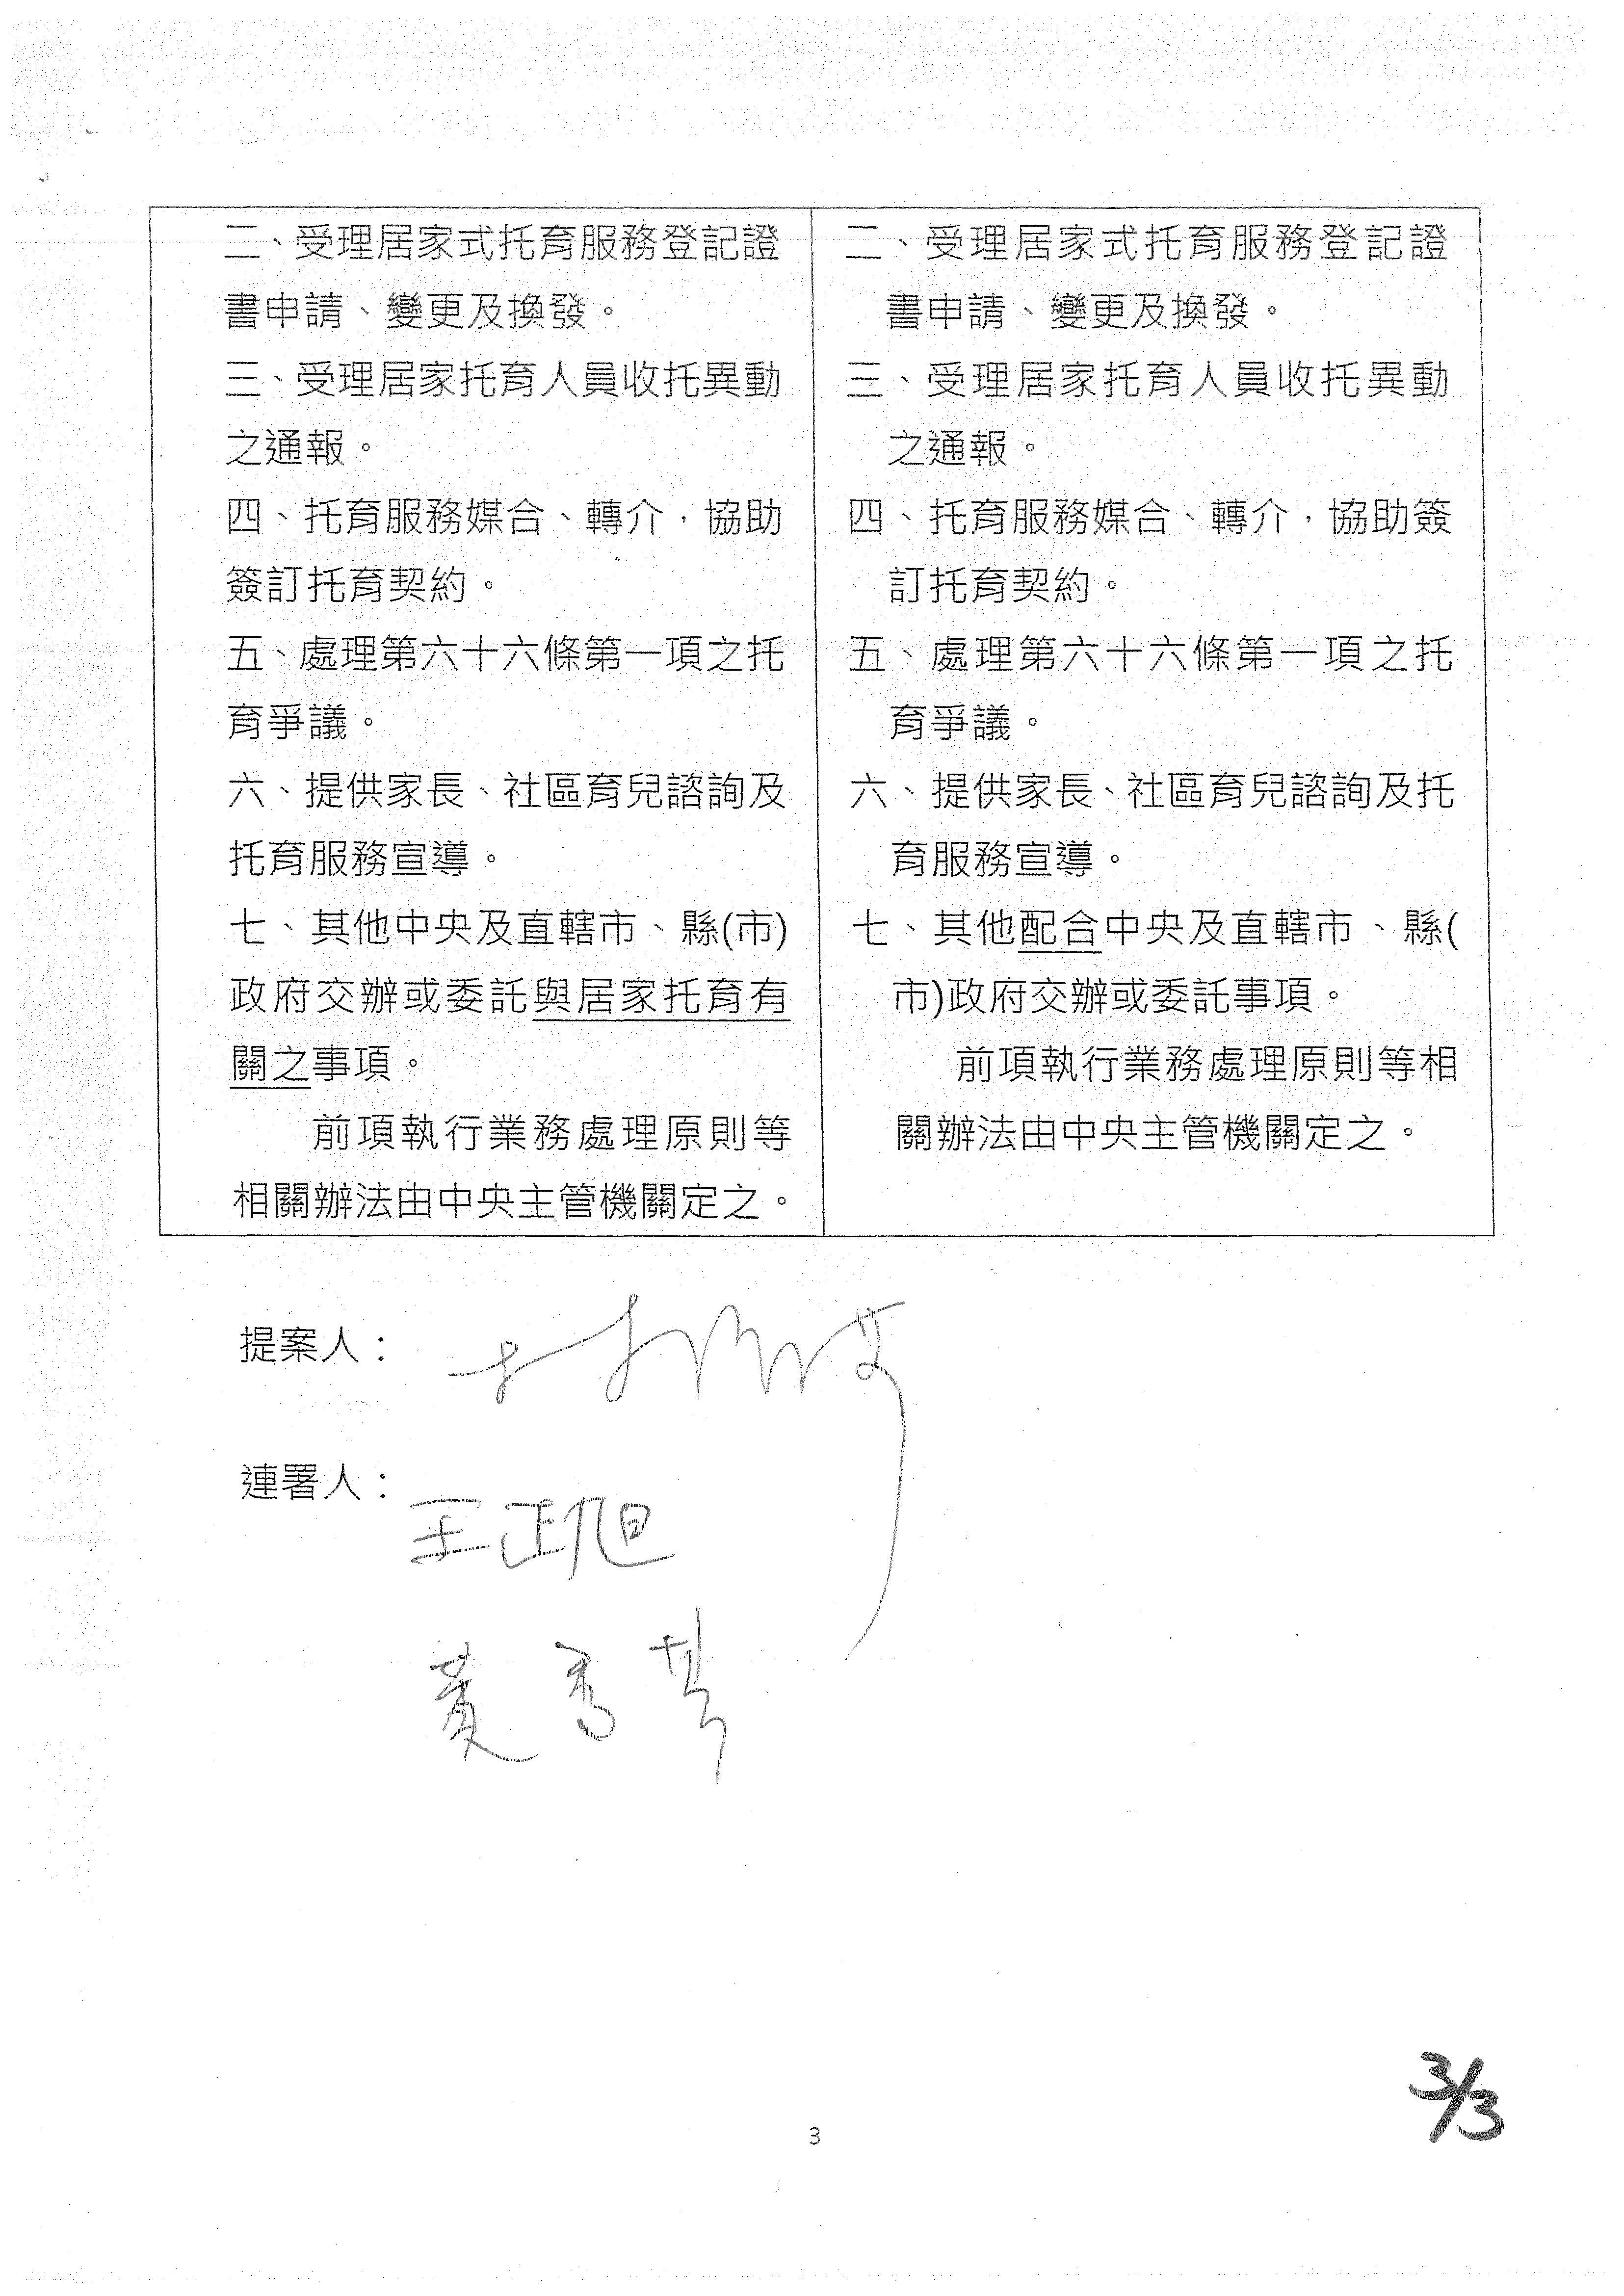 二、受理居家式托育服務登記證
書申請、變更及換發。
三、受理居家托育人員收托異動
之通報。
四、托育服務媒合、轉介，協助
簽訂托育契約。
五、處理第六十六條第一項之托
育爭議。
六、提供家長、社區育兒諮詢及
托育服務宣導。
七、其他中央及直轄市、縣(市)
政府交辦或委託與居家托育有
關之事項。
前項執行業務處理原則等
相關辦法由中央主管機關定之。
二、受理居家式托育服務登記證
書申請、變更及換發。
三、受理居家托育人員收托異動
之通報。
四、托育服務媒合、轉介，協助簽
訂托育契約。
五、處理第六十六條第一項之托
育爭議。
六、提供家長、社區育兒諮詢及托
育服務宣導。
七、其他配合中央及直轄市、縣(
市)政府交辦或委託事項。
前項執行業務處理原則等相
關辦法由中央主管機關定之。
提案人：
連署人：
王正旭
黃秀芳
3/3
3